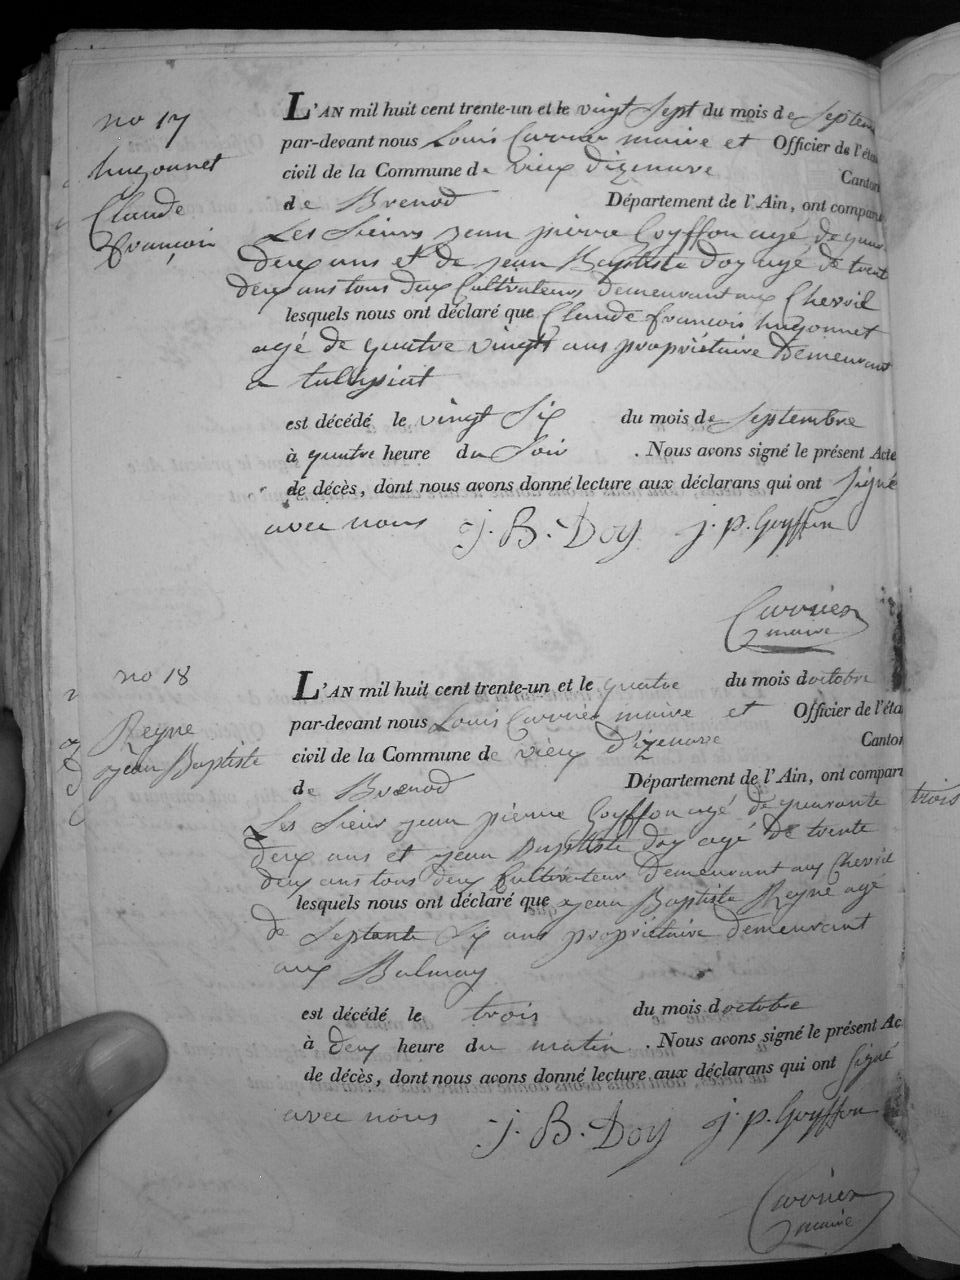 no 17
hugonnet
Claude
françois
L'AN mil huit cent trente-un et le vingt Sept du mois de Septem
par-devant nous Louis Carrier maire et Officier de l'éta
civil de la Commune de vieux dizenave Canton
de Brenod Département de l'Ain, ont compara
Les Sieurs jean pierre Goyffon agé de quar
deux ans et de jean Baptiste doy agé de trent
deux ans tous deux Cultivateurs demeurant aux Chevril
lesquels nous ont déclaré que Claude françois hugonnet
agé de quatre vingts ans propriétaire demeurant
a
est décédé le vingt Six du mois de Septembre
à quatre heure du Soir . Nous avons signé le présent Acte
de décès, dont nous avons donné lecture aux déclarans qui ont signé
avec nous J. B. Doy j. p. Goyffon
Carrier
maire
no 18
Reyne
jean Baptiste
L'AN mil huit cent trente-un et le quatre du mois doctobre
par-devant nous Louis Carrier maire et Officier de l'éta
civil de la Commune de vieux d'izenave Canton
de Brenod Département de l'Ain, ont compar
Les Sieur jean pierre Goyffon agé de quarante trois
deux ans et jean Baptiste doy agé de trente
deux ans tous deux Cultivateur demeurant aux Chevril
lesquels nous ont déclaré que jean Baptiste Reyne agé
de Septante Six ans propriétaire demeurant
aux Balmay
est décédé le trois du mois doctobre
à deux heure du matin . Nous avons signé le présent Ac
de décès, dont nous avons donné lecture aux déclarans qui ont signé
avec nous J. B. Doy j. p. Goyffon
Carrier
maire